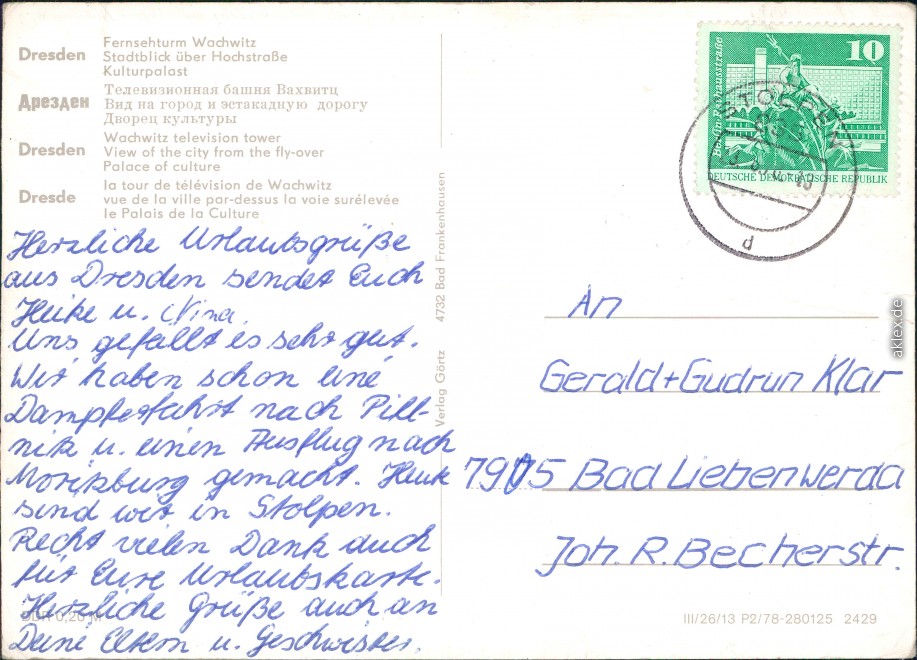 Dresden
Fernsehturm Wachwitz
Stadtblick über Hochstraße
Kulturpalast
Дрезден
Телевизионная башня Вахвитц
Вид на город и эстакадную дорогу
Дворец культуры
Dresden
Wachwitz television tower
View of the city from the fly-over
Palace of culture
Dresde
la tour de télévision de Wachwitz
vue de la ville par-dessus la voie surélevée
le Palais de la Culture
Herzliche Urlaubsgrüße
aus Dresden sendet Euch
Heike u. Nina.
Uns gefällt es sehr gut.
Wir haben schon eine
Dampferfahrt nach Pill-
nitz u. einen Ausflug nach
Moritzburg gemacht. Heute
sind wir in Stolpen.
Recht vielen Dank auch
für Eure Urlaubskarte.
Herzliche Grüße auch an
Deine Eltern u. Geschwister.
DDR 0,20 M
Verlag Görtz 4732 Bad Frankenhausen
10
Berlin, Rathausstraße
DEUTSCHE DEMOKRATISCHE REPUBLIK
STOLPEN
d
An
Gerald+Gudrun Klar
7905 Bad Liebenwerda
Joh. R. Becherstr.
III/26/13 P2/78-280125 2429
aklex.de